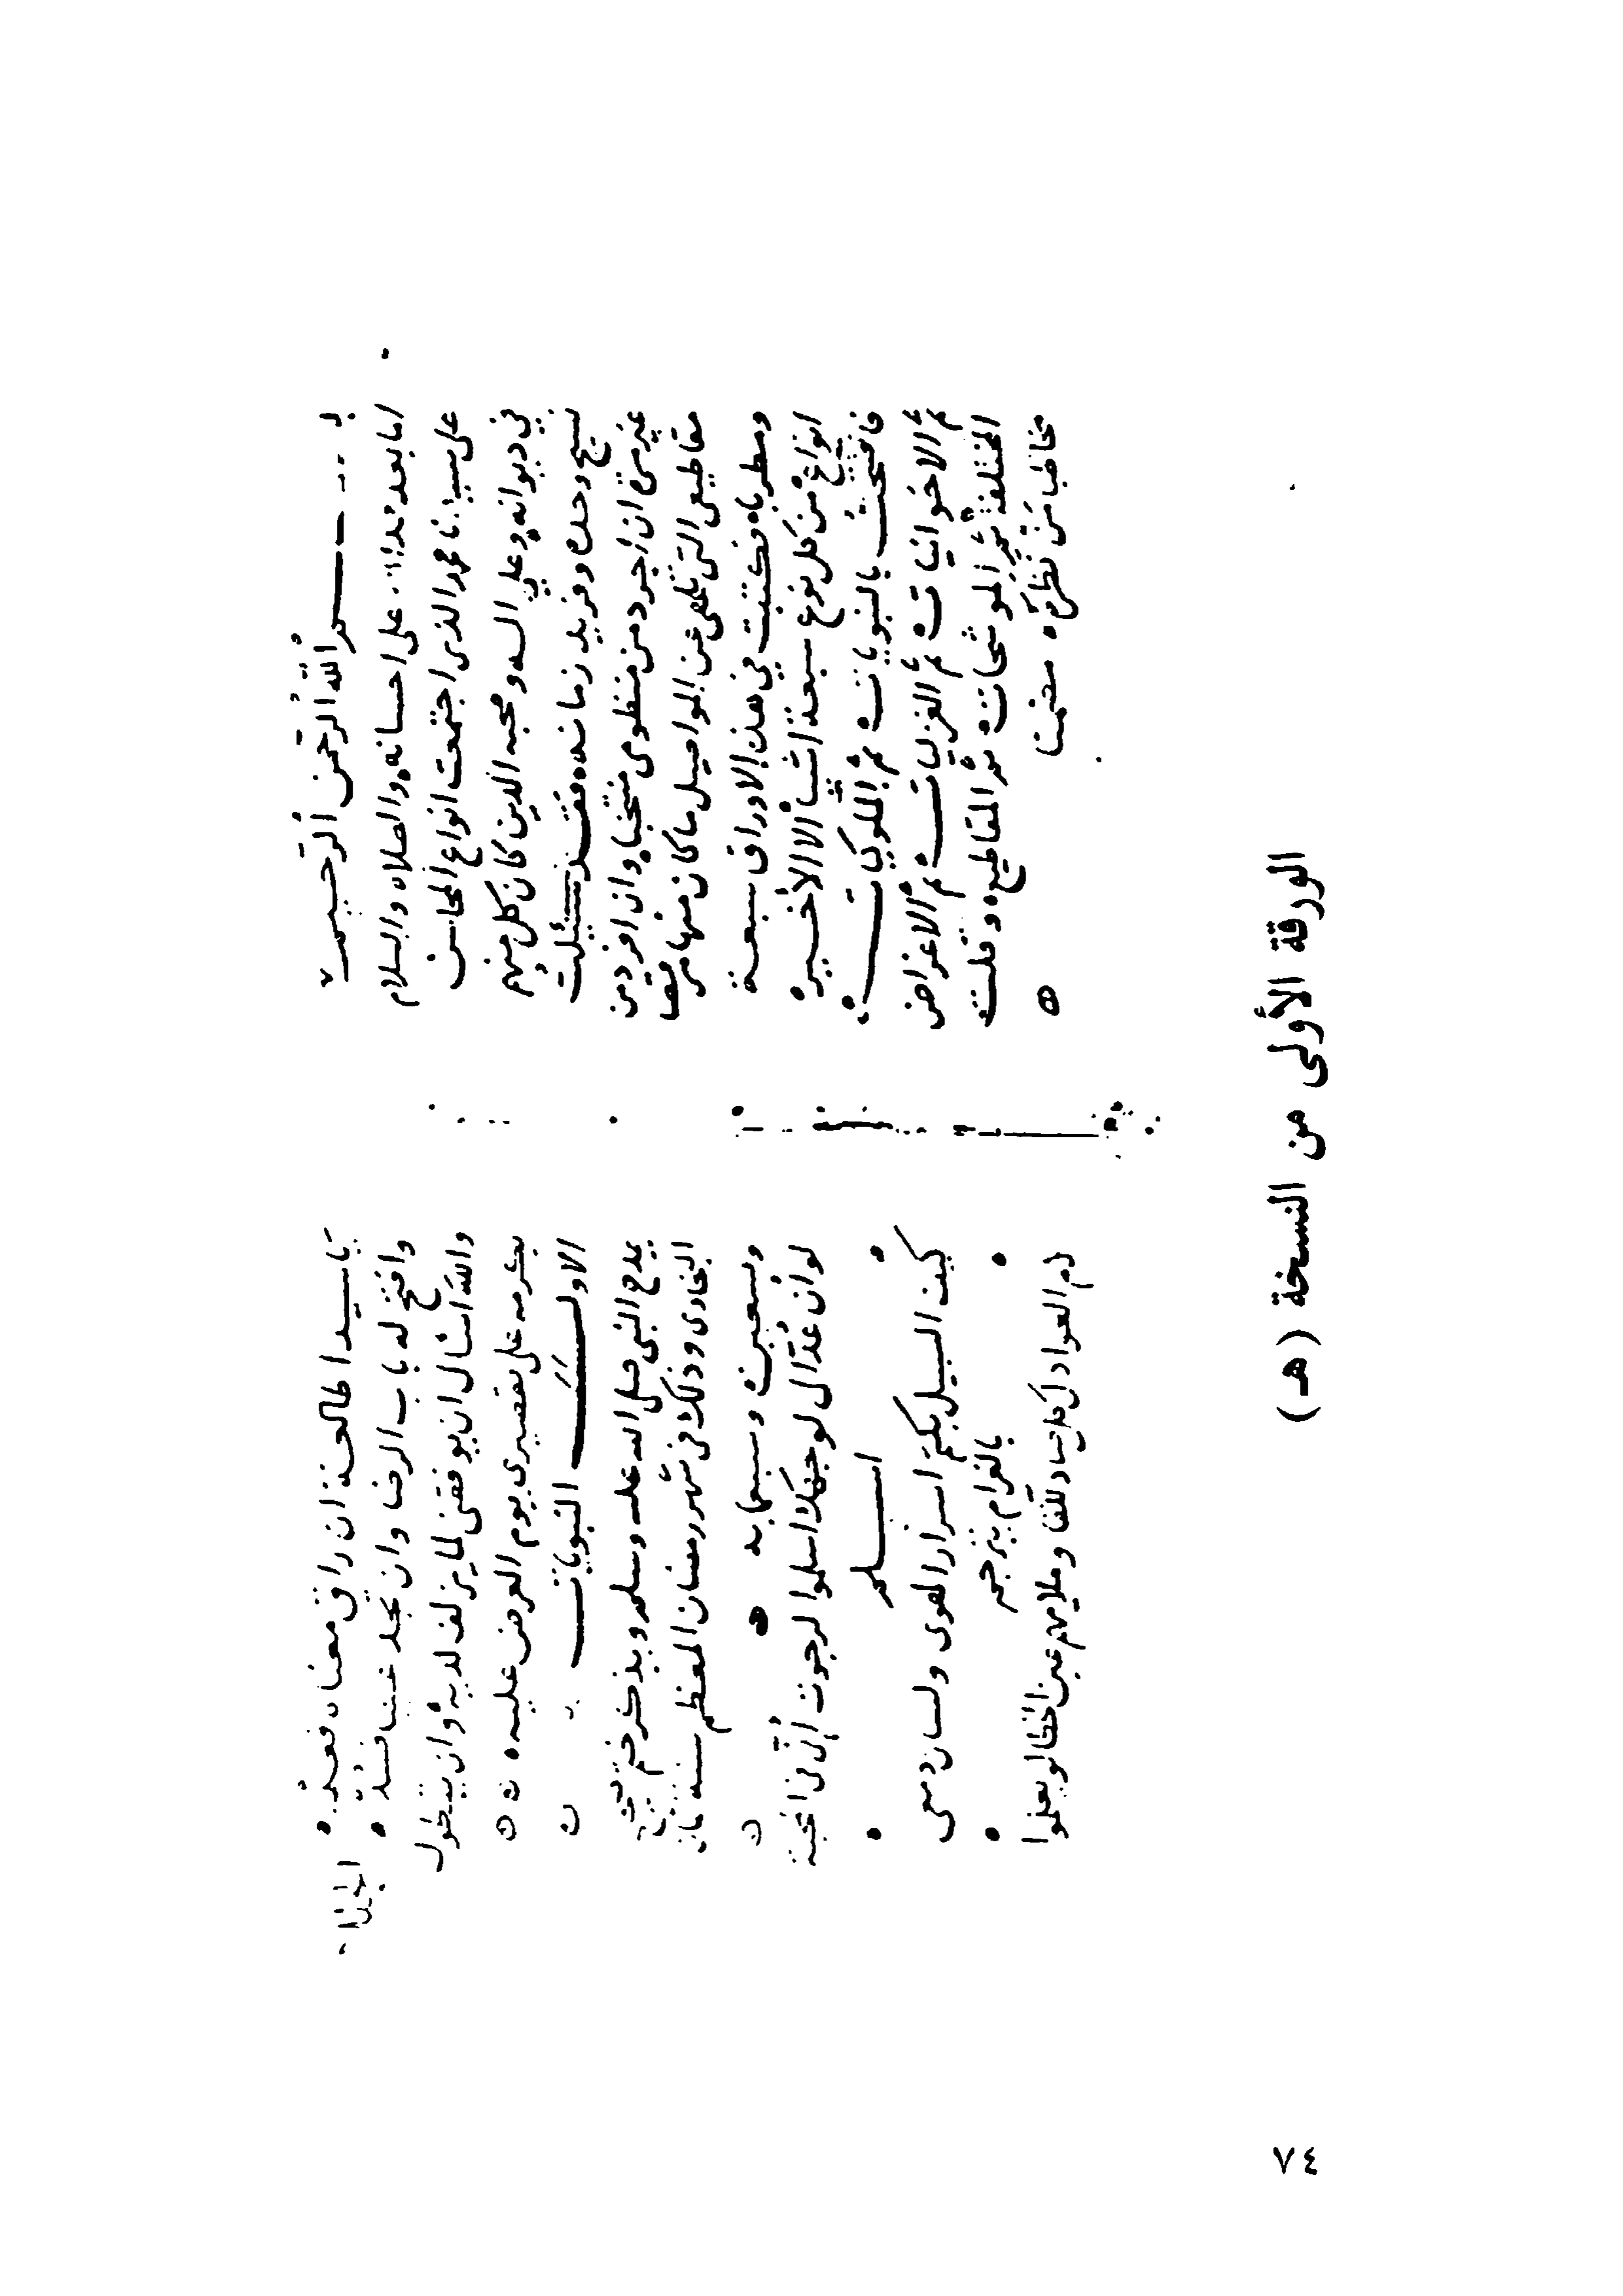 الله الرحمن الرحيم
اما بعد على احسانه والصلاه والسلام
على سيدنا محمد الذي اجتمعت انواع المحاسن
في ديوانه وعلي اله وصحبه الذين كان كل منهم
نسيج وحده وفريد زمانه فقد سئلت
غير مرة ان اجرد من منظومى منتخبا وان افرد من
مقاطيعى التى تلهى عن المواصيل ما كان منها مرقصا
ومطربا فكتبت في هذه الاوراق سبعة
انواع من كل نوع سبعة اشيأ الا الأخيره
فافتتحت بالنبويات ثم الملوكيات
ثم الاخوانيات ثم الغزليات ثم الاغراض
المختلفة ثم الموشحات ثم المقاطيع وقلت
مخاطبا من نظره متضمنا
ياسيدا طالعه ان راق معناه فعد
وافتح له باب الرضا وان تجد عيبا فسد
والله اسال ان يوفقنى لما يزلف لديه وان يتطول
بكرمه على تقصيرى يوم العرض عليه
الاول النبويات
يمدح النبي صلى الله عليه وسلم ويذكر ختم
البخارى وذلك فى شهر رمضان المعظم سنه
وتسعين وسبعمايه
لو ان عذالى لوجهك اسلموا لرجوت أنى فى المحبة
اسلم
كيف السبيل لكتم اسرار الهوى ولسان دمعى
بالغرام يترجم
الورقة الأولى من النسخة (هـ)
٧٤